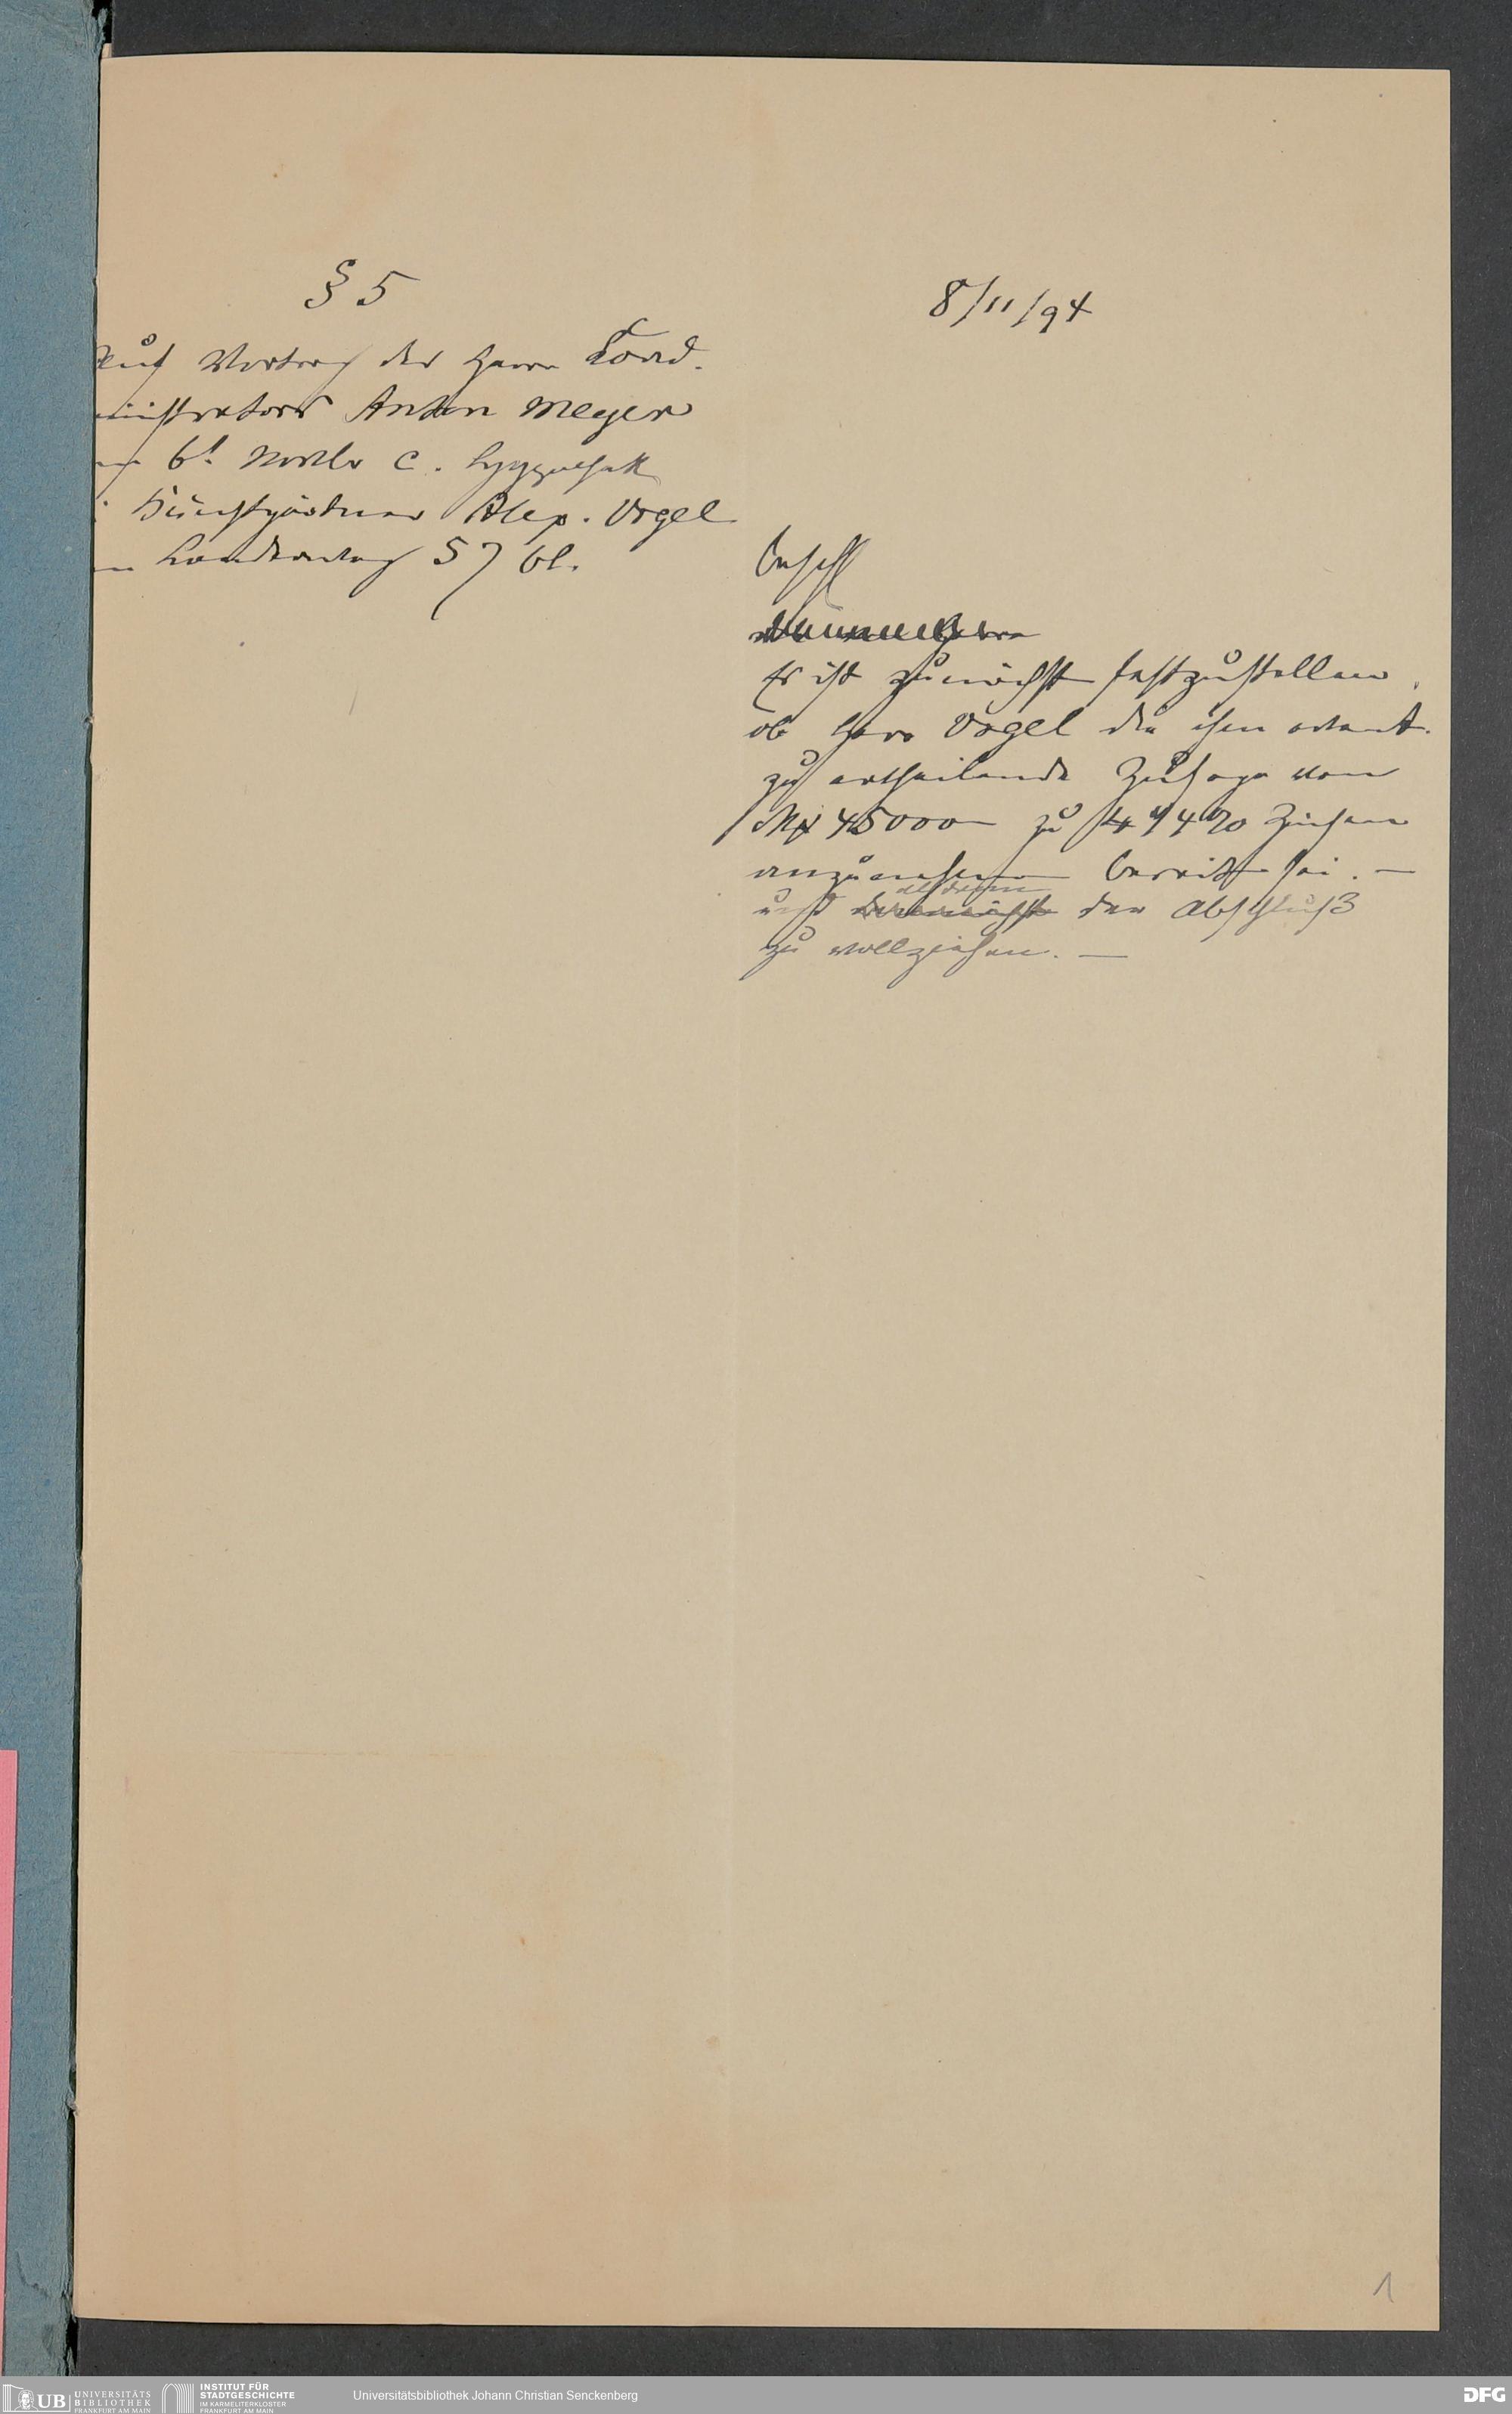 § 5
8/11/94
Auf Vortrag des Herrn Fond.
ministrators Anton Meyer
6t. Novbr c. Hypothek
Kunstgärtner Alex. Vogel
Landerweg 57 bt.
Beschl
Es ist zunächst festzustellen
ob Herr Vogel die ihm event.
zu ertheilende Zusage von
Mx 45000 zu 4 1/4 % Zinsen
anzunehmen bereit sei. —
und alsdann der Abschluß
zu vollziehen. —
1
UB UNIVERSITÄTS BIBLIOTHEK FRANKFURT AM MAIN
INSTITUT FÜR STADTGESCHICHTE IM KARMELITERKLOSTER FRANKFURT AM MAIN
Universitätsbibliothek Johann Christian Senckenberg
DFG